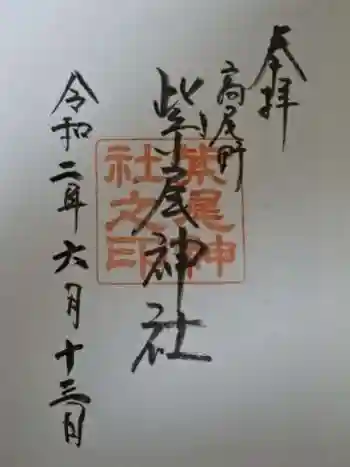 奉拝
高尾野
紫尾神社
紫尾神
社之印
令和二年六月十三日